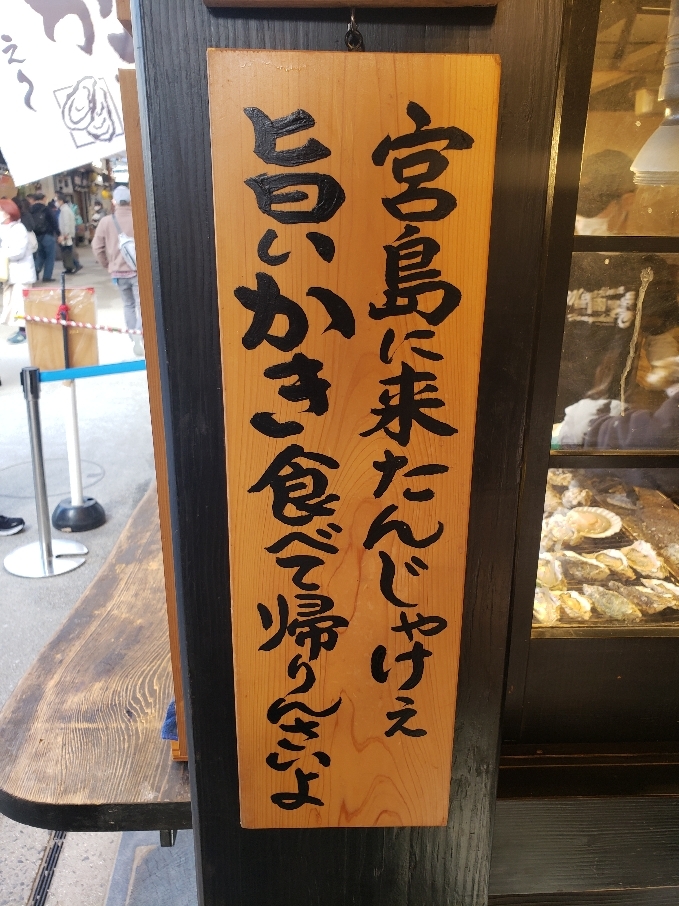 宮島に来たんじゃけぇ
旨いかき食べて帰りんさいよ